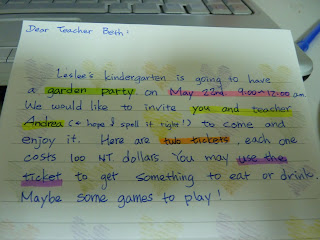 Dear Teacher Beth:
Leslee's kindergarten is going to have
a garden party on May 22nd. 9:00~12:00 am
We would like to invite you and teacher
Andrea (← hope I spell it right!) to come and
enjoy it. Here are two tickets, each one
costs 100 NT dollars. You may use the
ticket to get something to eat or drink.
Maybe some games to play!